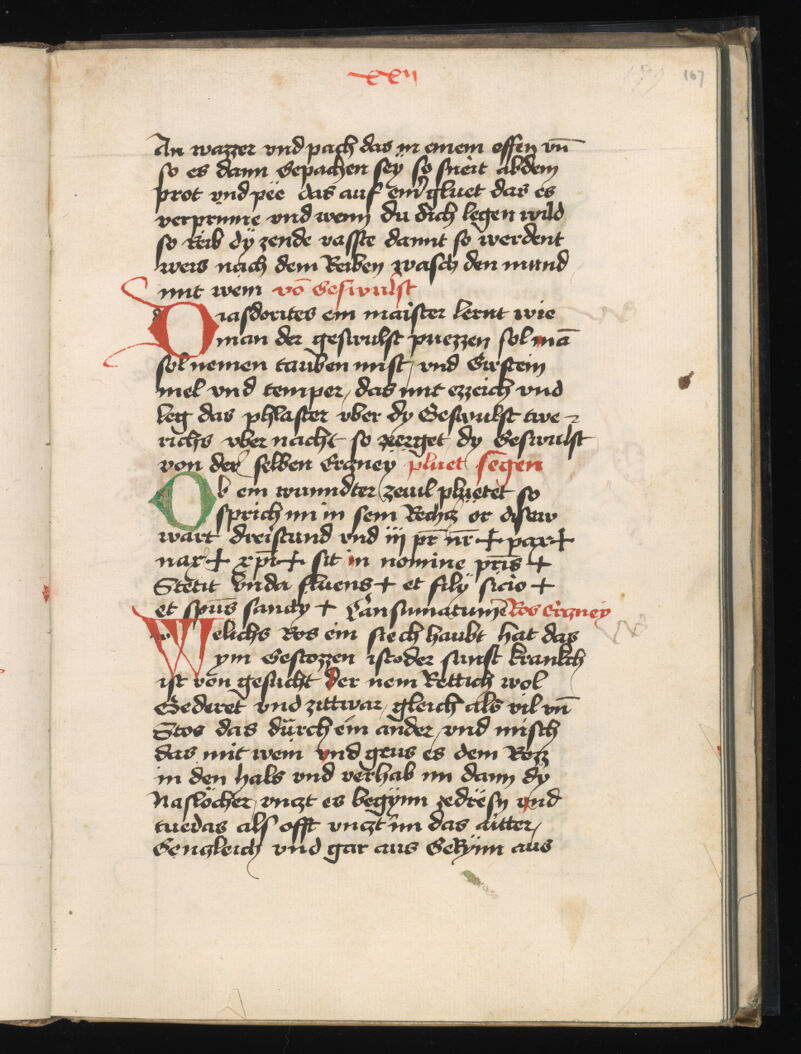 xxii
167
An wazzer vnd pach das in einem offen vn̄
so es dann Gepachen sey so sneit abdem
prot vnd pëe das auf ein̕ gluet das es
verprinne vnd wenn du dich legen wild
so Reib dÿ zende vasste damit so werdent
weis nach dem Reiben wasch den mund
mit wein vō Geswulst
iasdorites ein maister lernt wie
man der geswulst puezzen sol mā
sol nemen tauben mist vnd Gersten
mel vnd temper das mit ezzeich vnd
leg das phlaster vber dy Geswulst twe
richs vber nacht so zerget dy Geswulst
von der selben Erczney pluet segen
Ob ein wunndter zeuil plüetet so
sprich im in sein Rechcz or disew
wart dreistund vnd iii pr̄ nr̄ + pax +
nax + xp̄r + sit in nomine pr̄is +
Stetit vnda fluens + et filÿ sicio +
et sp̄us sancty + Consumatum Ros erczney
Welichs Ros ein siech haubt hat das
ym Gestozzen ist oder sunst kranckh
ist von gesücht Der nem Rettich wol
Gederet vnd zittwar gleich als vil vn̄
Stos das dürch ein ander vnd misch
das mit wein vnd geus es dem Rozz
in den hals vnd verhab im dann dÿ
Naslöcher vnczt es begynn zedresn vnd
tuedas als offt vnczt im das aitter
Gengleich vnd gar aus Gerÿnn aus